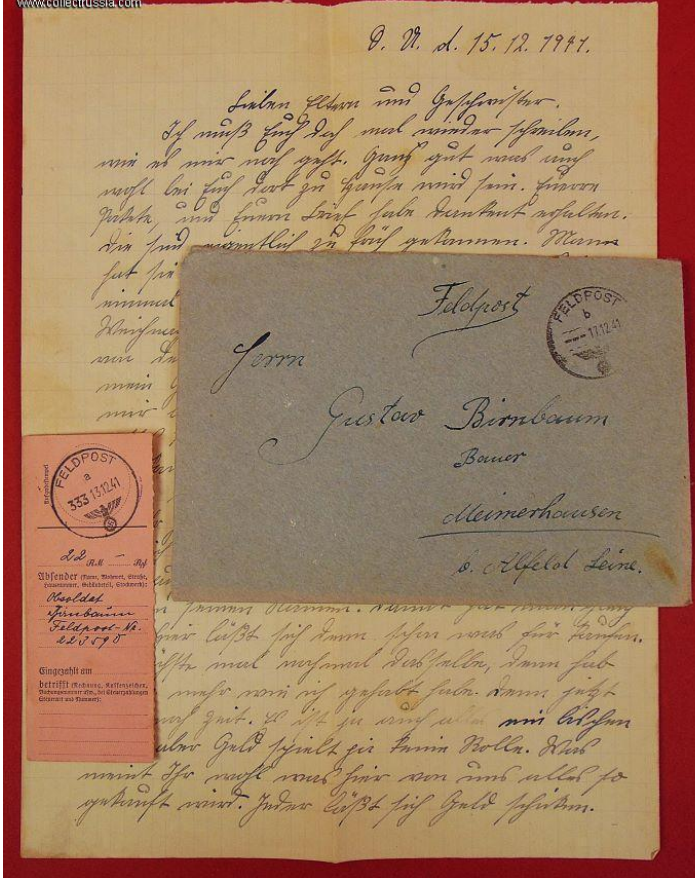 www.collectrussia.com
O. U. d. 15. 12. 1941.
Lieben Eltern und Geschwister.
Ich muß Euch doch mal wieder schreiben,
wie es mir noch geht. Ganz gut was auch
wohl bei Euch dort zu Hause wird sein. Euere
Pakete, und Euern Brief habe dankent erhalten.
Die sind eigentlich zu früh gekommen. Mann
hat sie
einmal
von
mein
mir
Feldpost
FELDPOST
b
17.12.41
Herrn
Gustav Birnbaum
Bauer
Meimerhausen
b. Alfeld Leine.
FELDPOST
a
333 13.12.41
22 RM — Rpf
Absender (Name, Wohnort, Straße,
Hausnummer, Gebäudeteil, Stockwerk):
Obsoldat
Birnbaum
Feldpost-Nr.
22359 D
Eingezahlt am
betrifft (Rechnung, Kassenzeichen,
Buchungsnummer usw., bei Steuerzahlungen
Steuerart und Nummer):
seinen Namen.
hier läßt sich denn schon was für kaufen.
mal nochmal dasselbe, denn hab
mehr wie ich gehabt habe. Denn jetzt
noch Zeit. Es ist ja auch alles ein bischen
aber Geld spielt hir keine Rolle. Was
meint Ihr wohl was hier von uns alles so
gekauft wird. Jeder läßt sich Geld schicken.